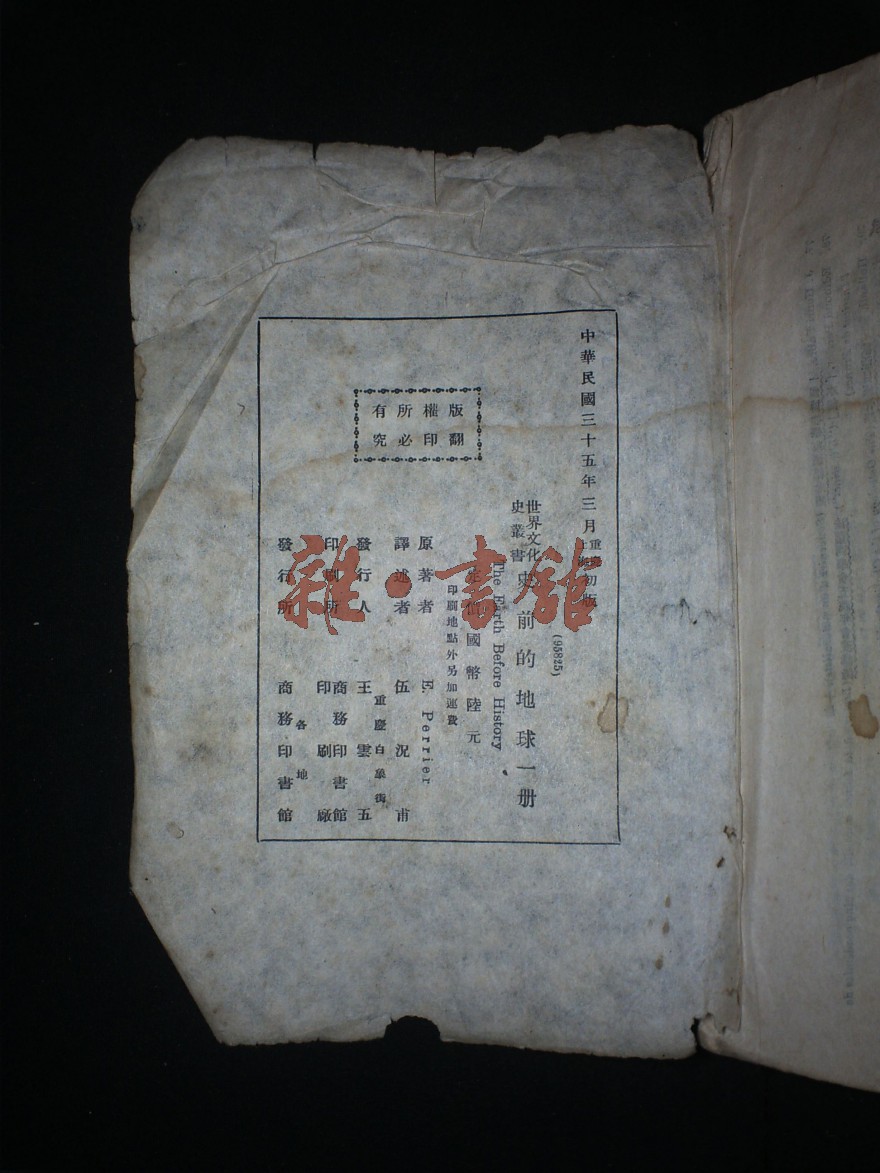 中華民國三十五年三月重慶初版
上海初版
(95825)
世界文化史叢書 史前的地球一册
The Earth Before History
定價國幣陸元
印刷地點外另加運費
版權所有
翻印必究
原著者 E. Perrier
譯述者 伍況甫
重慶白象街
發行人 王雲五
印刷所 商務印書館印刷廠
各地
發行所 商務印書館
雜·書館